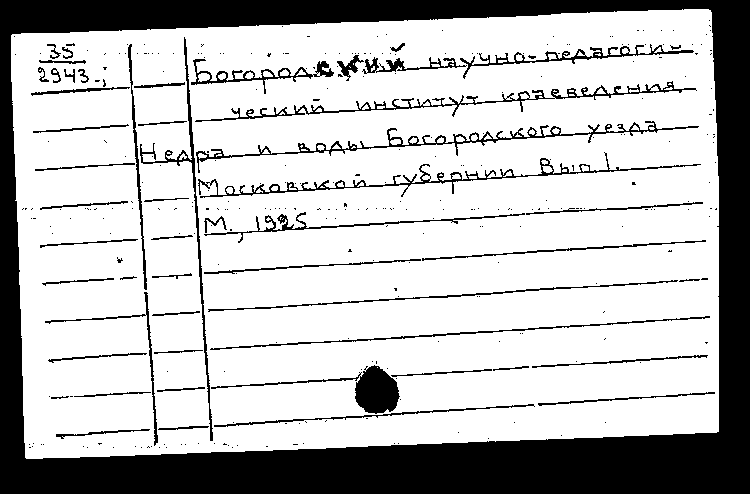 35
2943.;
Богородский научно-педагоги-
ческий институт краеведения.
Недра и воды Богородского уезда
Московской губернии. Вып. 1.
М., 1925